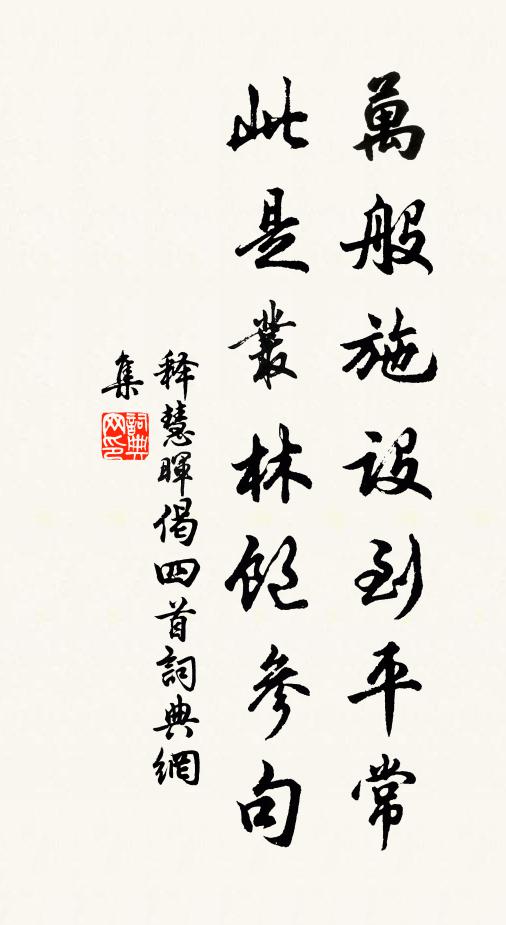 萬般施設到平常
此是叢林飽參句
释慧暉偈四首詞典網
集
詞典
网印